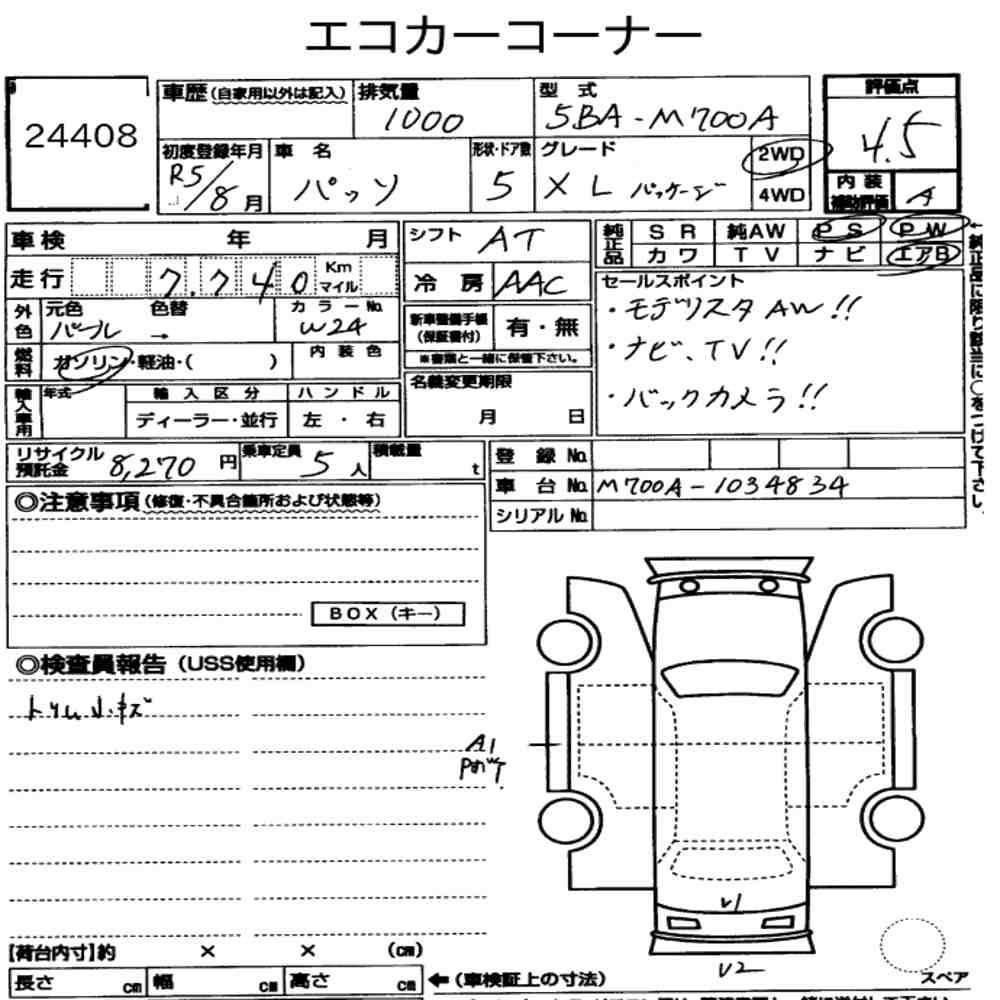 エコカーコーナー
24408
車歴(自家用以外は記入) 排気量 1000 型式 5BA-M700A 評価点 4.5
初度登録年月 R5/8月 車名 パッソ 形状・ドア数 5 グレード XL パッケージ 2WD 4WD 内装補助評価 A
車検 年 月 シフト AT 純正品 SR 純AW PS PW
カワ TV ナビ エアB
走行 7,740 Km マイル 冷房 AAC セールスポイント
外色 元色 パール 色替 → カラーNo. W24 新車整備手帳(保証書付) 有・無 ・モデリスタAW!!
燃料 ガソリン・軽油・( ) 内装色 ※書類と一緒に保管下さい。 ・ナビ、TV!!
輸入車用 年式 輸入区分 ハンドル 名義変更期限 ・バックカメラ!!
ディーラー・並行 左・右 月 日
←純正品に限り該当に○をつけて下さい。
リサイクル預託金 8,270円 乗車定員 5人 積載量 t 登録No.
車台No. M700A-1034834
シリアルNo.
◎注意事項(修復・不具合箇所および状態等)
BOX(キー)
◎検査員報告(USS使用欄)
トリム小キズ
A1
U1
U2
スペア
【荷台内寸】約 × × (cm)
長さ cm 幅 cm 高さ cm ←(車検証上の寸法)